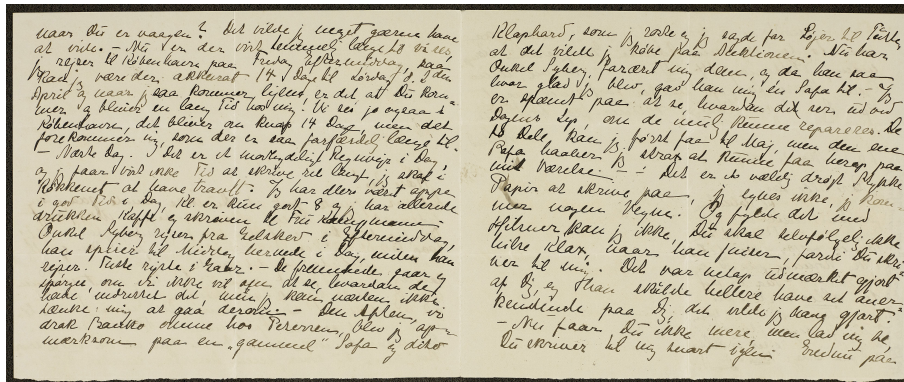 naar Du er vaagen? Det vilde jeg meget gærne have
at vide. – Nu er der vist temmelig længe til vi ses,
jeg rejser til København paa Fredag Eftermiddag, saa
kan jeg være der, akkurat 14 Dage til Lørdag d. 9 den
April, naar jeg saa kommer hjem er det at Du kom-
mer og bliver en lang Tid hos mig! Vi ses jo ogsaa i
København, det bliver om knap 14 Dage, men det
forekommer mig, som der er saa forfærdelig længe til
– Næste Dag. – Det er et mærkeligt Regnvejr i Dag,
og jeg faar vist ikke Tid at skrive ret langt, jeg skal i
Køkkenet at have travlt. Jeg har ellers været oppe
i god Tid i Dag, Kl. er kun godt 8 og jeg har allerede
drukken Kaffe og skreven til Fru
Onkel Syberg rejser fra Gelsked i Eftermiddag,
han spiser til Middag hernede i Dag, inden han
rejser. Tutte rejste i Gaar. – De fremmede gaar og
spørger, om vi ikke vil op at se, hvordan de
havde indrettet det, men jeg kan næsten ikke
tænke mig at gaa derom. – Den Aften, vi
drak Franko omme hos Perersen, blev jeg op-
mærksom paa en „gammel" Sofa og dito
Klapbord, som jeg roste og jeg sagde for Løjer til Tutte,
at det vilde jeg købe paa Auktionen. Nu har
Onkel Syberg foræret mig dem, og da han saa
hvor glad jeg blev, gav han mig en Sofa til. – Jeg
er spændt paa at se, hvordan det ser ud ved
Dagens Lys, om de mulig kunne repareres. De
to Dele kan jeg først faa til Maj, men den ene
Sofa haaber jeg straks at kunne faa herop paa
mit Værelse. – – Det er et vældig drøjt Stykke
Papir at skrive paa, jeg synes ikke jeg kom-
mer nogen Vegne. Og fylde det med
kan jeg ikke. Du skal selvfølgelig ikke
hilse Klax, naar han fniser, fordi Du skri-
ver til mig. Det var netop udmærket gjort
af Dig, og han skulde hellere have set aner-
kendende paa Dig, det vilde jeg have gjort.
– Nu faar Du ikke mere, men lad mig se,
Du skriver til mig snart igen. Endnu paa